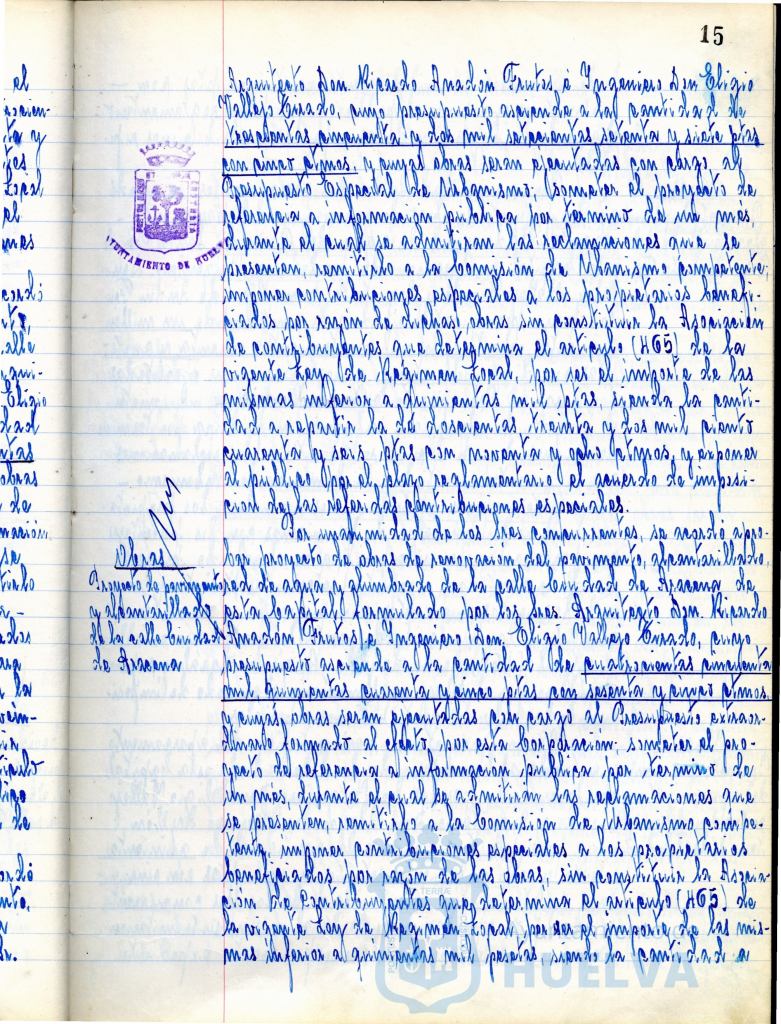 15
Arquitecto Don Ricardo Anadón Frutos é Ingeniero Don Eligio
Vallejo Tirado, cuyo presupuesto asciende a la cantidad de
trescientas cincuenta y dos mil setecientas setenta y siete ptas
con cinco ctmos. y cuyas obras seran ejecutadas con cargo al
Presupuesto Especial de Urbanismo; someter el proyecto de
referencia a información pública por termino de un mes,
durante el cual se admitiran las reclamaciones que se
presenten, remitirlo a la Comisión de Urbanismo competente;
imponer contribuciones especiales a los propietarios benefi-
ciados por razón de dichas obras sin constituir la Asociacion
de contribuyentes que determina el articulo (465) de la
vigente Ley de Regimen Local, por ser el importe de las
mismas inferior a quinientas mil ptas, siendo la canti-
dad a repartir la de doscientas treinta y dos mil ciento
cuarenta y seis ptas con noventa y ocho ctmos, y exponer
al público por el plazo reglamentario el acuerdo de imposi-
cion de las referidas contribuciones especiales.
Por unanimidad de los Sres concurrentes, se acordó apro-
bar proyecto de obras de renovación del pavimento, alcantarillado,
red de agua y alumbrado de la calle Ciudad de Aracena de
esta Capital, formulado por los Sres. Arquitecto Don. Ricardo
Anadón Frutos é Ingeniero Don. Eligio Vallejo Tirado, cuyo
presupuesto asciende a la cantidad de cuatrocientas cincuenta
mil, quinientas cuarenta y cinco ptas con sesenta y cinco ctmos.
y cuyas obras seran ejecutadas con cargo al Presupuesto extraor-
dinario formado al efecto, por esta Corporación; someter el pro-
yecto de referencia a información pública por termino de
un mes, durante el cual se admitiran las reclamaciones que
se presenten, remitirlo a la Comisión de Urbanismo compe-
tente, imponer contribuciones especiales a los propietarios
beneficiados por razón de las obras, sin constituir la Asocia-
ción de Contribuyentes que determina el articulo (465) de
la vigente Ley de Regimen Local, por ser el importe de las mis-
mas inferior a quinientas mil pesetas siendo la cantidad a
AYUNTAMIENTO DE HUELVA
Obras
Proyecto de pavimento
y alcantarillado
de la calle Ciudad
de Aracena
HUELVA